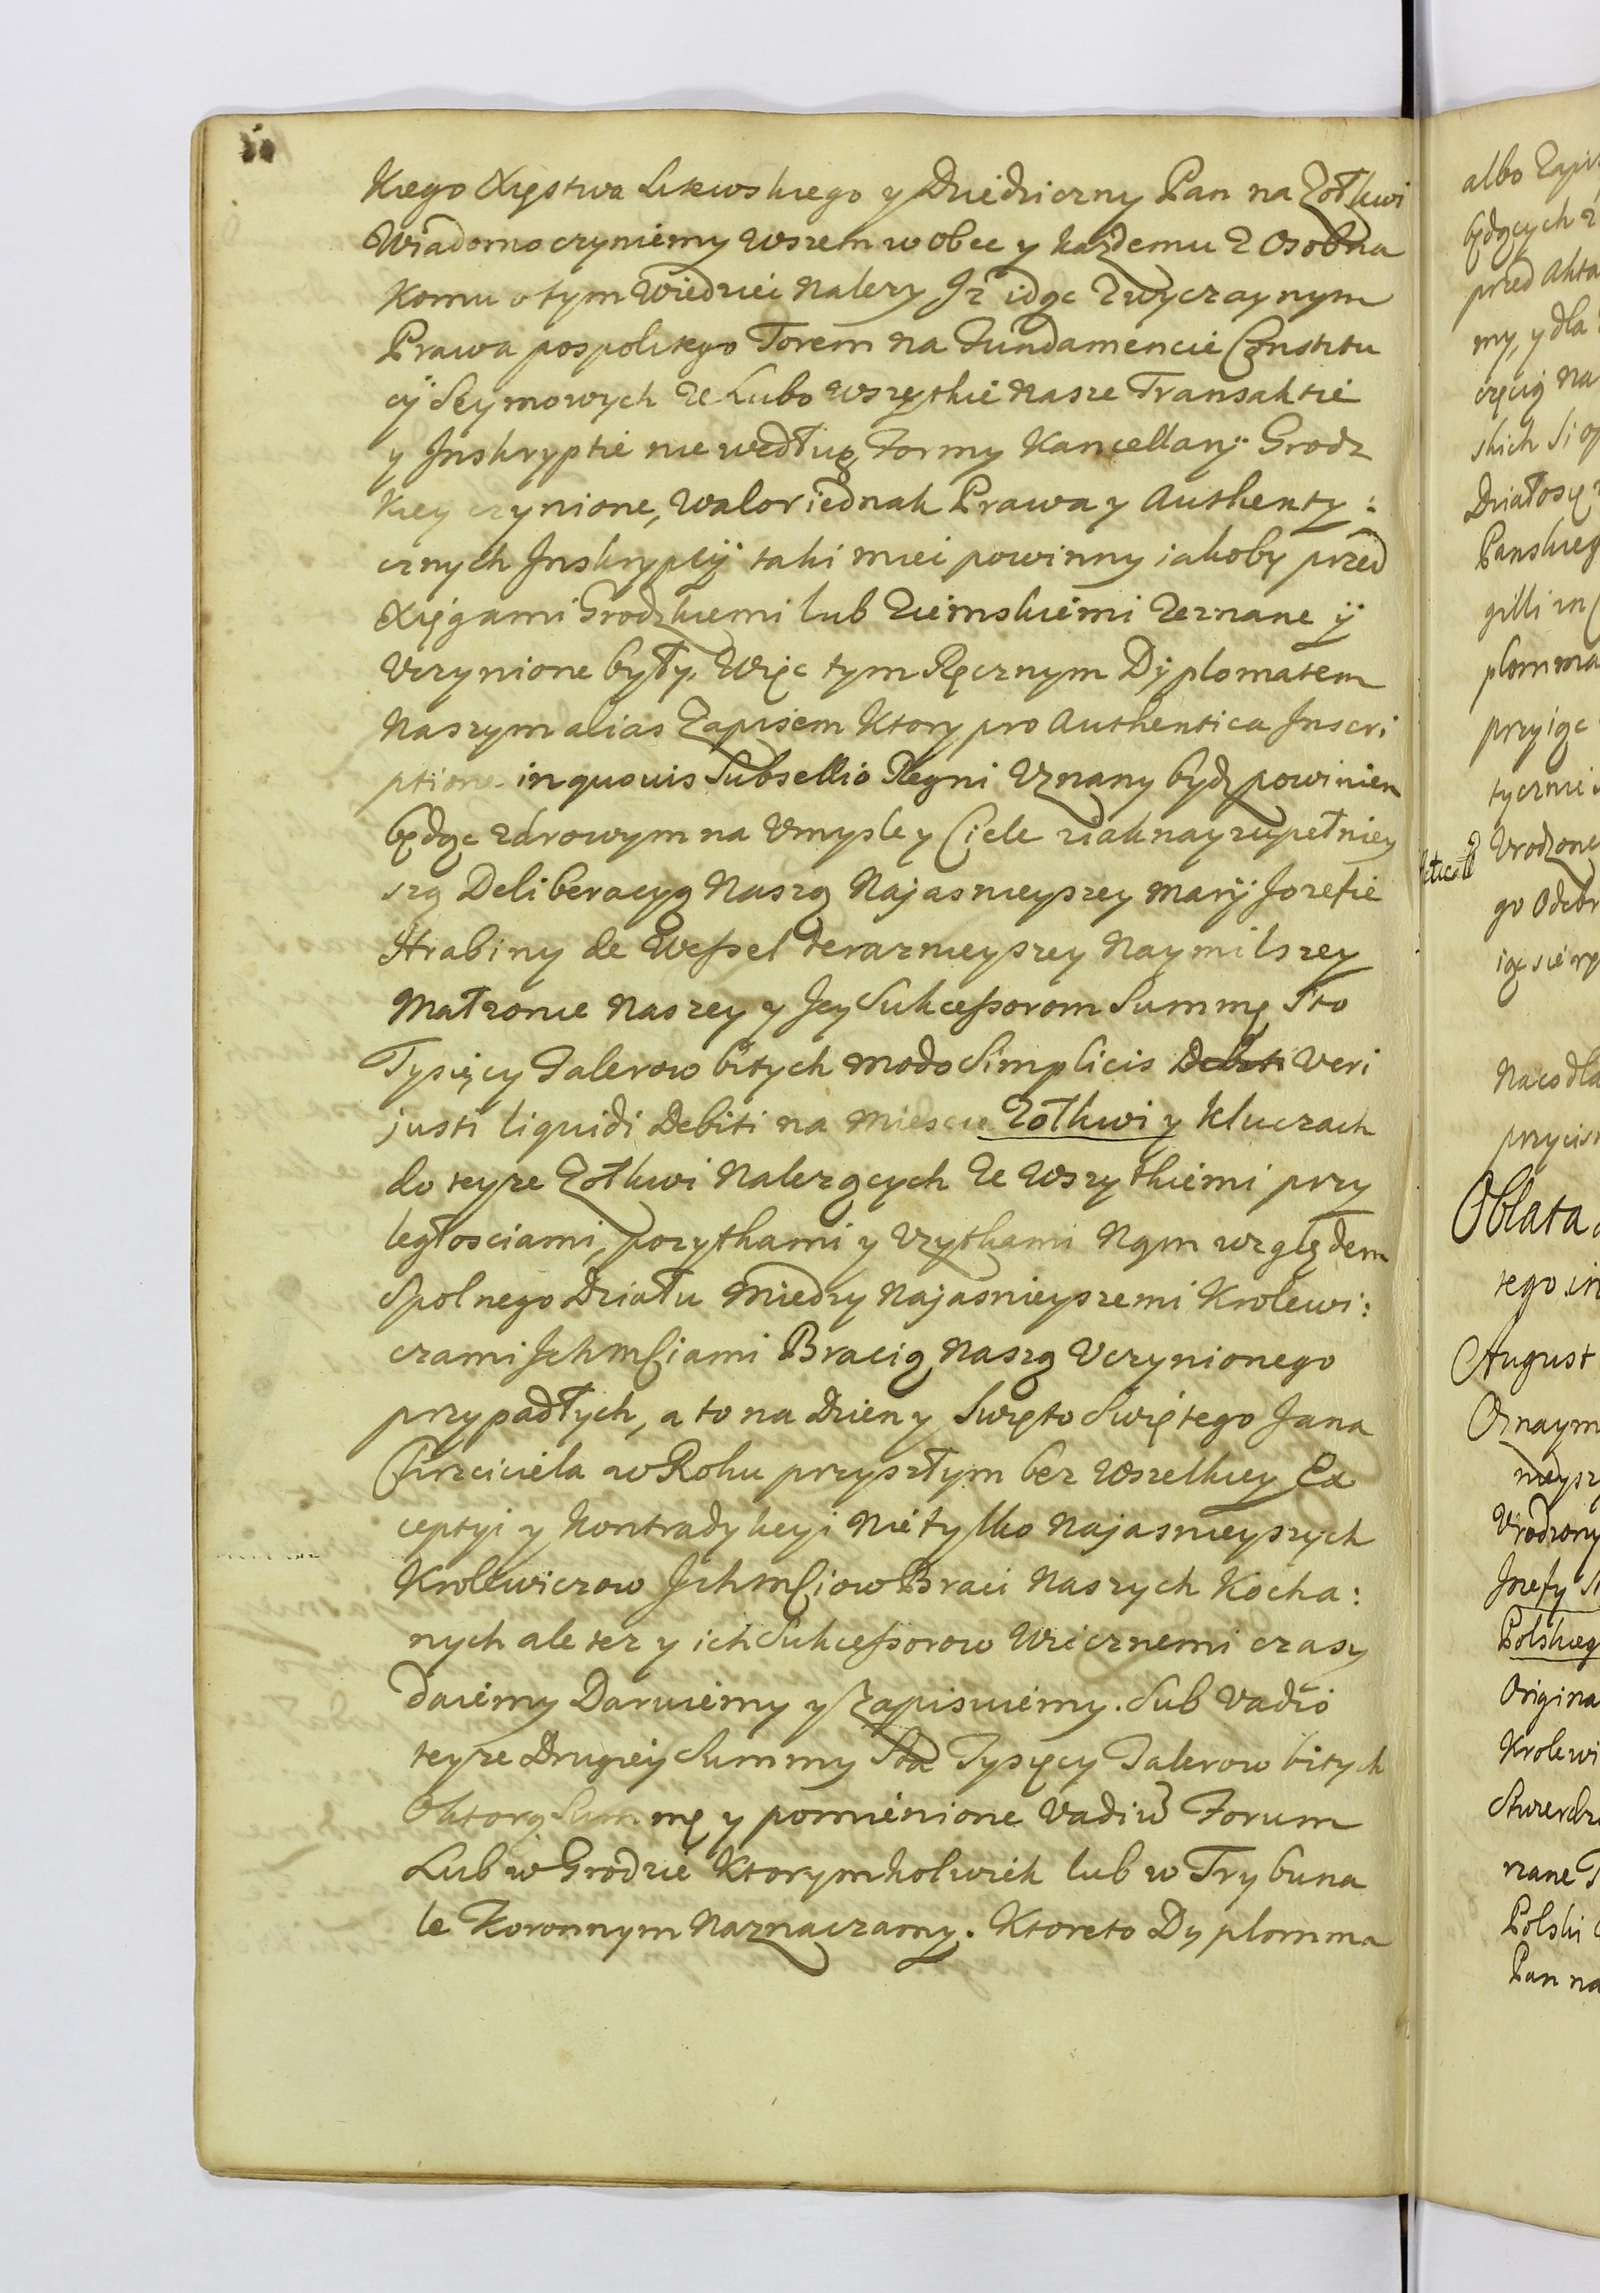 kiego Xięstwa Litewskiego y Dziedziczny Pan na Zołkwi
Wiadomo czyniemy wszem w obec y każdemu z osobna
Komu o tym Wiedziei Nalezy Iż idąc zwyczaynym
Prawa pospolitego Torem na Fundamencie Constitu
cÿ Seymowych ze Lubo wszytkie Nasze Transaktie
y Inskryptie nie według Formy Kancellarÿ Grodz
kiey czynione, walor iednak Prawa y Authenty:
cznych Inskrypcÿ taki miei powinny iakoby przed
Xięgami Grodzkiemi lub Ziemskiemi zeznane ÿ
Vczynione były. Więc tym Ręcznym Dÿplomatem
Naszym alias Zapisem Ktory pro Authentica Inscri
ptione in quouis Subsellio Regni Vznany bydz powinien
będąc zdrowym na Vmysle y Ciele ziak nayzupełniey
szą Deliberacyą Naszą Najasnieyszey Marÿ Jozefie
Hrabiny de Wessel teraznieyszey Naymilszey
Małzonie Naszey y Jey Sukcessorom Summę Sto
Tysięcy Talerow bitych modo Simplicis Debiti Veri
justi liquidi Debiti na Miescie Zołkwi y kluczach
do teyze Zołkwi Nalezących ze Wszytkiemi przy
ległosciami, pozytkami y Vzytkami Nąm względem
Spolnego Działu Miedzy Najasnieyszemi Krolewi:
czami Ichmściami Bracią Naszą Vczynionego
przypadłych, a to na Dzien y Swięto Swiętego Jana
Chrzciciela w Roku przyszłym bez Wszelkiey Ex
ceptyi y Kontradykcyi Nie tylko Najasnieyszych
Krolewiczow Ichmściow Braci Naszych Kocha:
nych ale tez y ich Sukcessorow Wiecznemi czasy
daiemy Daruiemy y Zapisuiemy. Sub Vadio
teyze Drugiey Summy Sta Tysięcy Talerow bitych
O ktorą Summę y pomienione Vadiũ Forum
Lub w Grodzie Ktorymkolwiek lub w Trybuna
le Koronnym Naznaczamy. Ktoreto Dyplomma
albo Zapis
będących
przed Akta
my, y dla
Działosię
plomma
przyiąc
Vrodzone
go Odebr
Na co dla
przycis
Oblata
tego in
August
Oznaym
nieysz
Vrodzony
Jozefy
Polskieg
Origina
Krolewi
Polski
Pan na